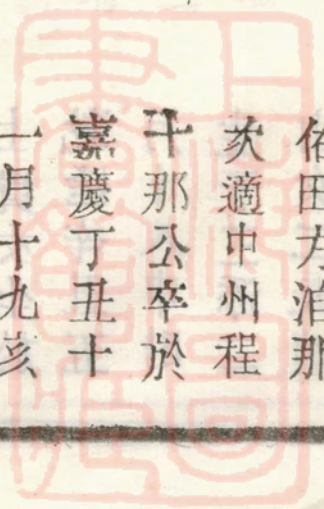 佑田方洎那
次適中州程
十那公卒於
嘉慶丁丑十
一月十九亥